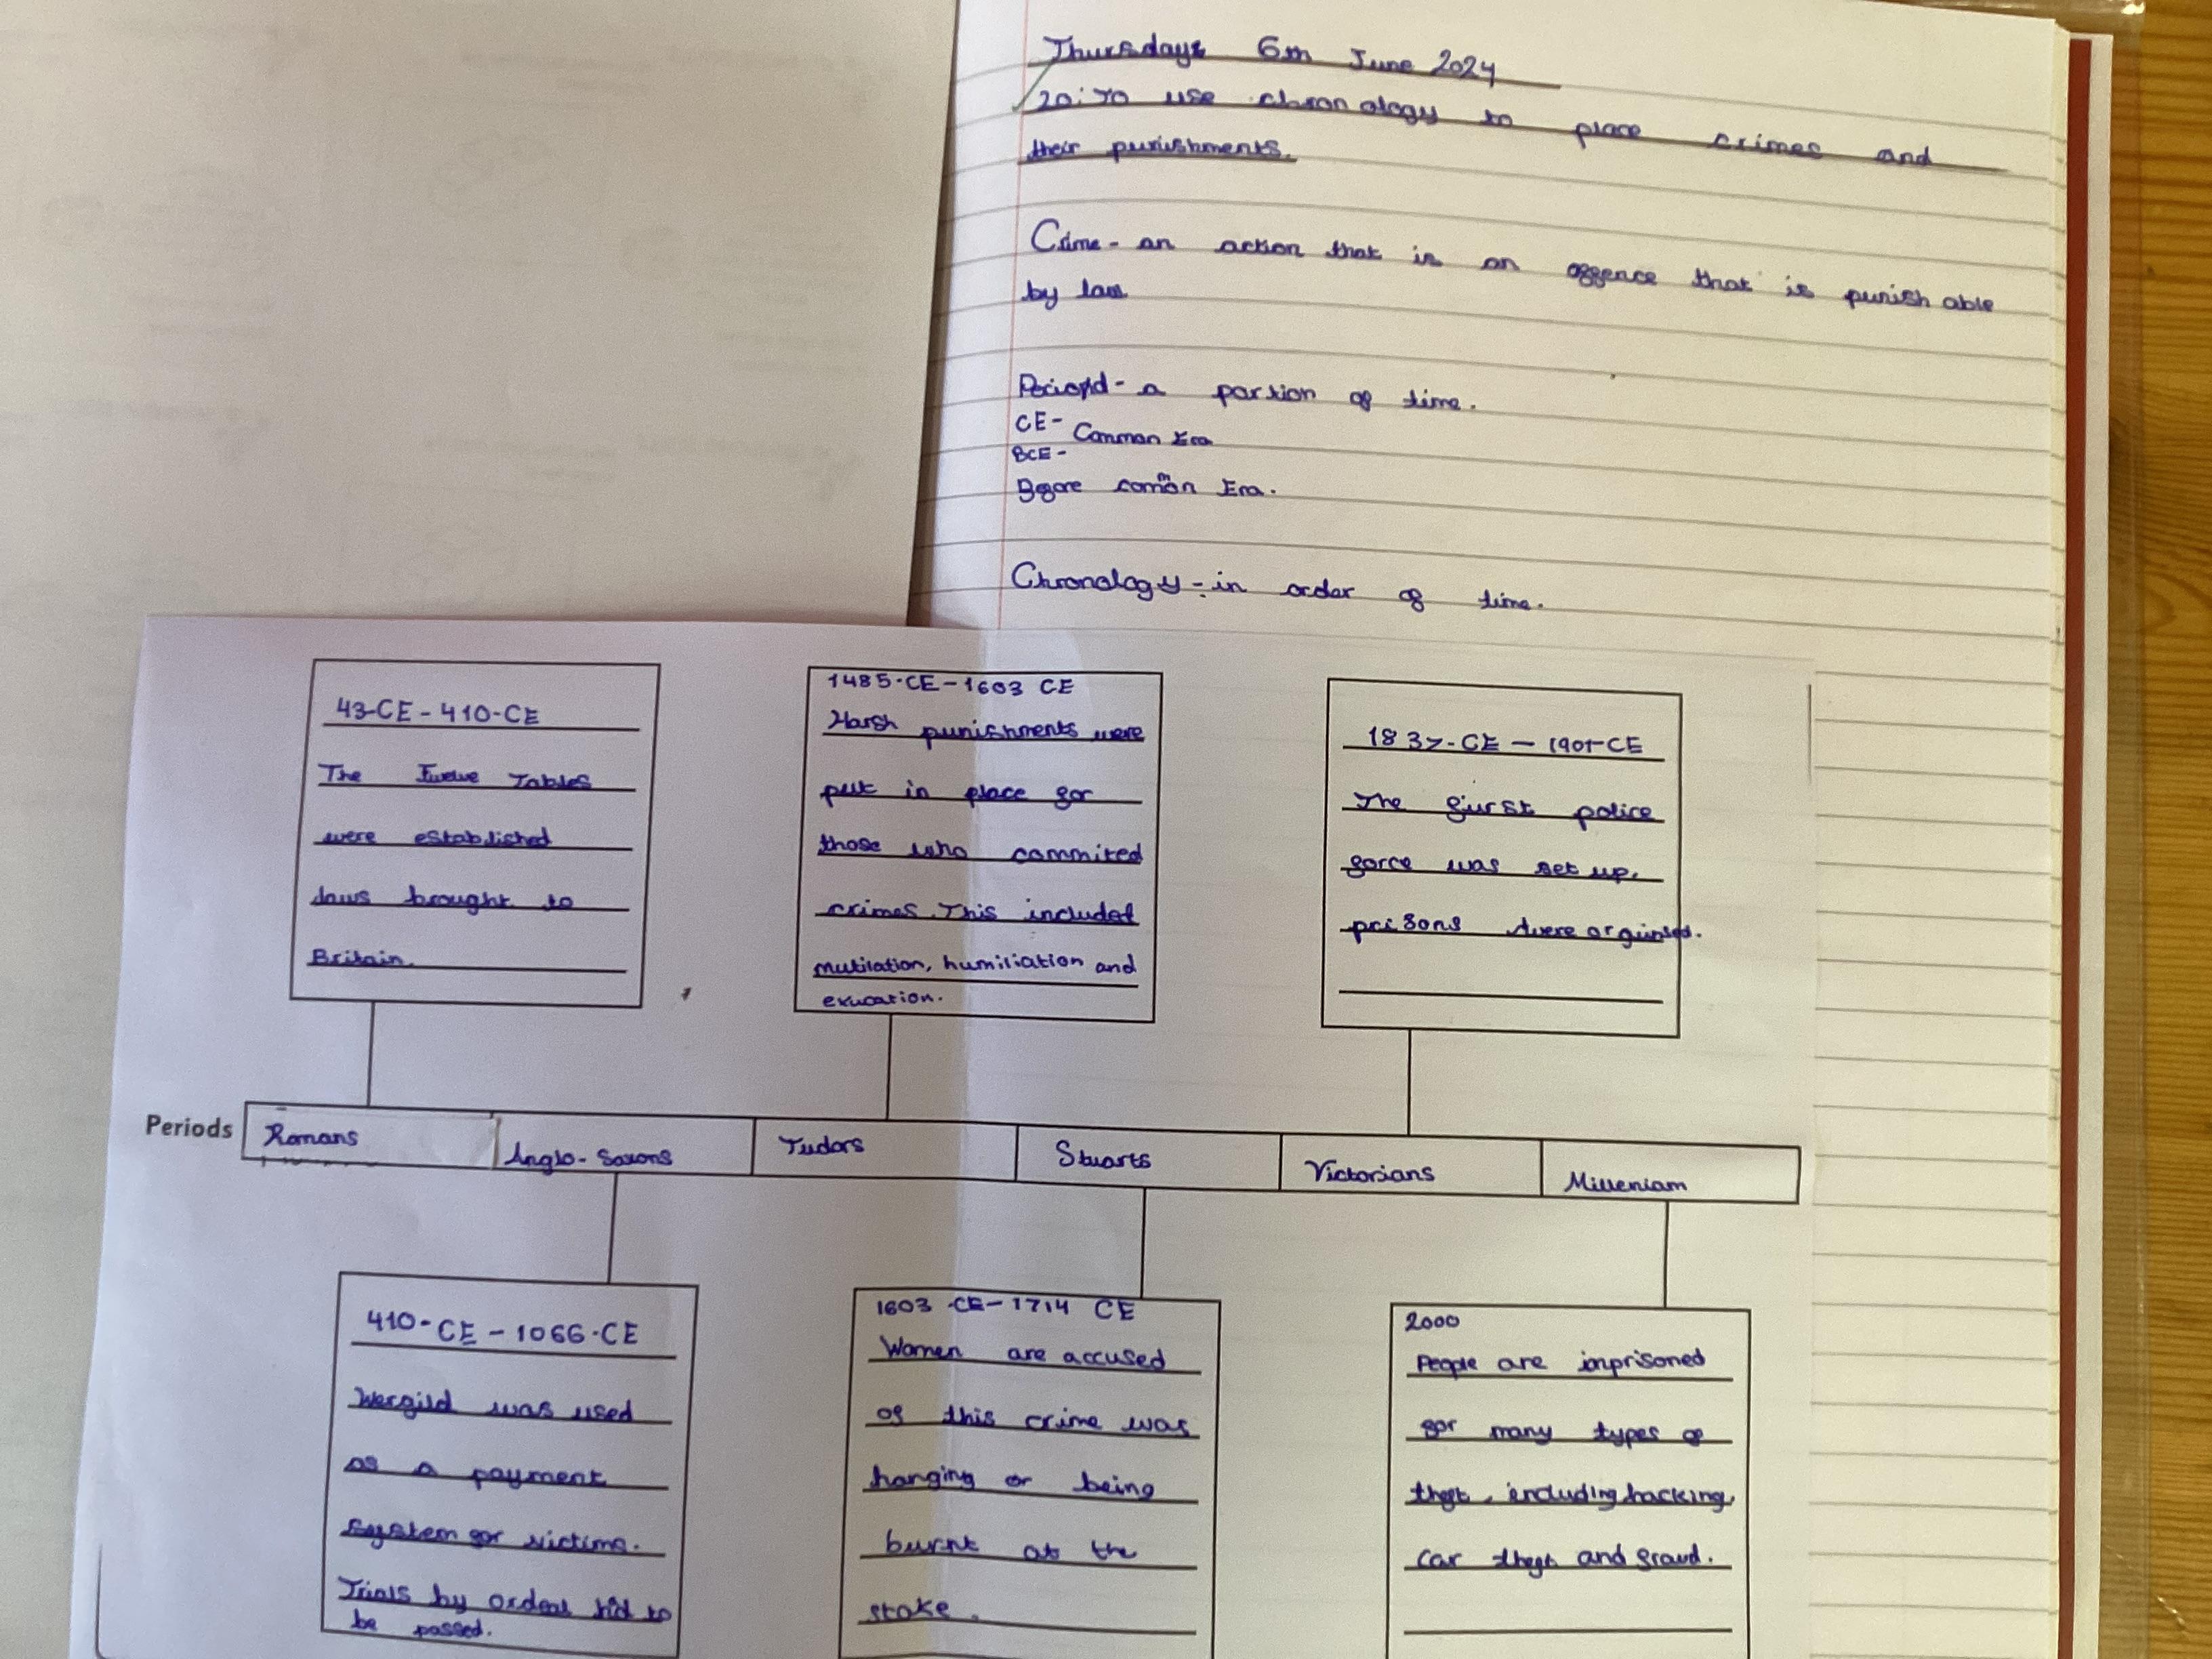 Thursdays 6th June 2024
LO: To use chronology to place crimes and
their punishments.
Crime - an action that is an offence that is punish able
by law
Period - a portion of time.
CE - Common Era
BCE -
Before common Era.
Chronology - in order of time.
43-CE - 410-CE
The Twelve Tables
were established
laws brought to
Britain.
1485-CE - 1603 CE
Harsh punishments were
put in place for
those who commited
crimes. This included
mutilation, humiliation and
exucation.
1837-CE - 1901-CE
The first police
force was set up.
prisons were
Periods
Romans
Anglo-Saxons
Tudors
Stuarts
Victorians
Milleniam
410-CE - 1066-CE
Wergild was used
as a payment
system for victims.
Trials by ordeal had to
be passed.
1603-CE - 1714 CE
Women are accused
of this crime was
hanging or being
burnt at the
stake.
2000
People are imprisoned
for many types of
theft, including hacking,
car theft and fraud.